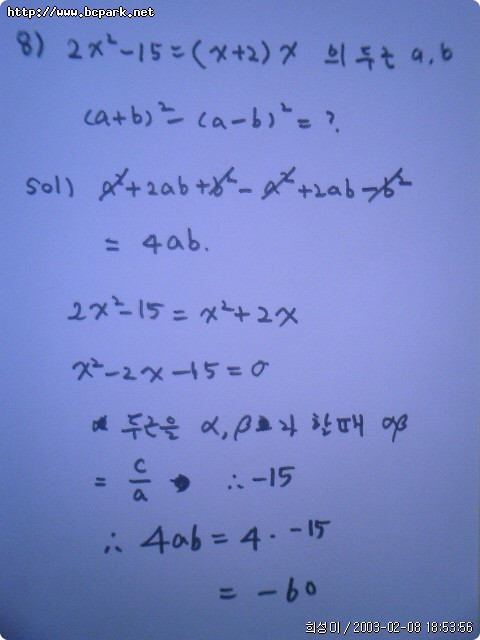 http://www.bcpark.net
8) 2x²-15=(x+2)x 의 두근 a,b
(a+b)²-(a-b)²=?
sol) a²+2ab+b²-a²+2ab-b²
= 4ab.
2x²-15=x²+2x
x²-2x-15=0
두근을 α,β라 할때 αβ
= c/a ∴ -15
∴ 4ab = 4·-15
= -60
희성이 / 2003-02-08 18:53:56